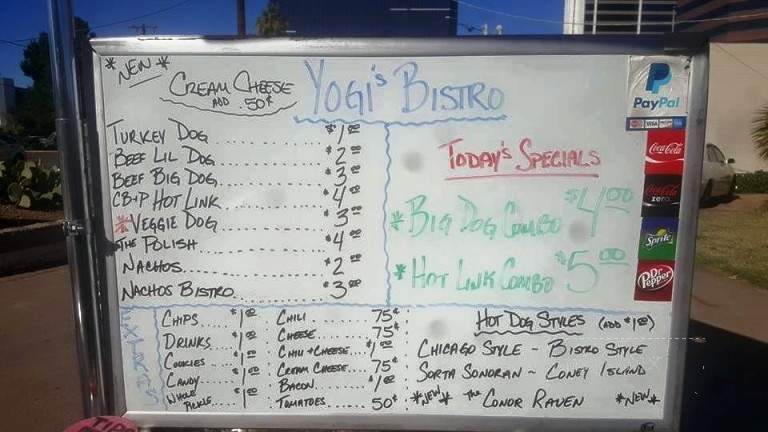 *NEW*
CREAM CHEESE
ADD .50¢
YOGI'S BISTRO
TURKEY DOG........ $1.00
BEEF LIL DOG........ $2.00
BEEF BIG DOG........ $3.00
CB+P HOT LINK........ $4.00
*VEGGIE DOG........ $3.00
THE POLISH........ $4.00
NACHOS........ $2.00
NACHOS BISTRO........ $3.00
TODAY'S SPECIALS
*BIG DOG COMBO $4.00
*HOT LINK COMBO $5.00
EXTRAS
CHIPS.... $1.00
DRINKS.... $1.00
COOKIES.... $1.00
CANDY.... $1.00
WHOLE PICKLE.... $1.00
CHILI........ 75¢
CHEESE........ 75¢
CHILI+CHEESE.... $1.00
CREAM CHEESE.... 75¢
BACON........ $1.00
TOMATOES...... 50¢
HOT DOG STYLES (ADD $1.00)
CHICAGO STYLE - BISTRO STYLE
SORTA SONORAN - CONEY ISLAND
*NEW* THE CONOR RAVEN *NEW*
PayPal
VISA
Coca-Cola
Coca-Cola
zero
Sprite
Dr Pepper
TIPS